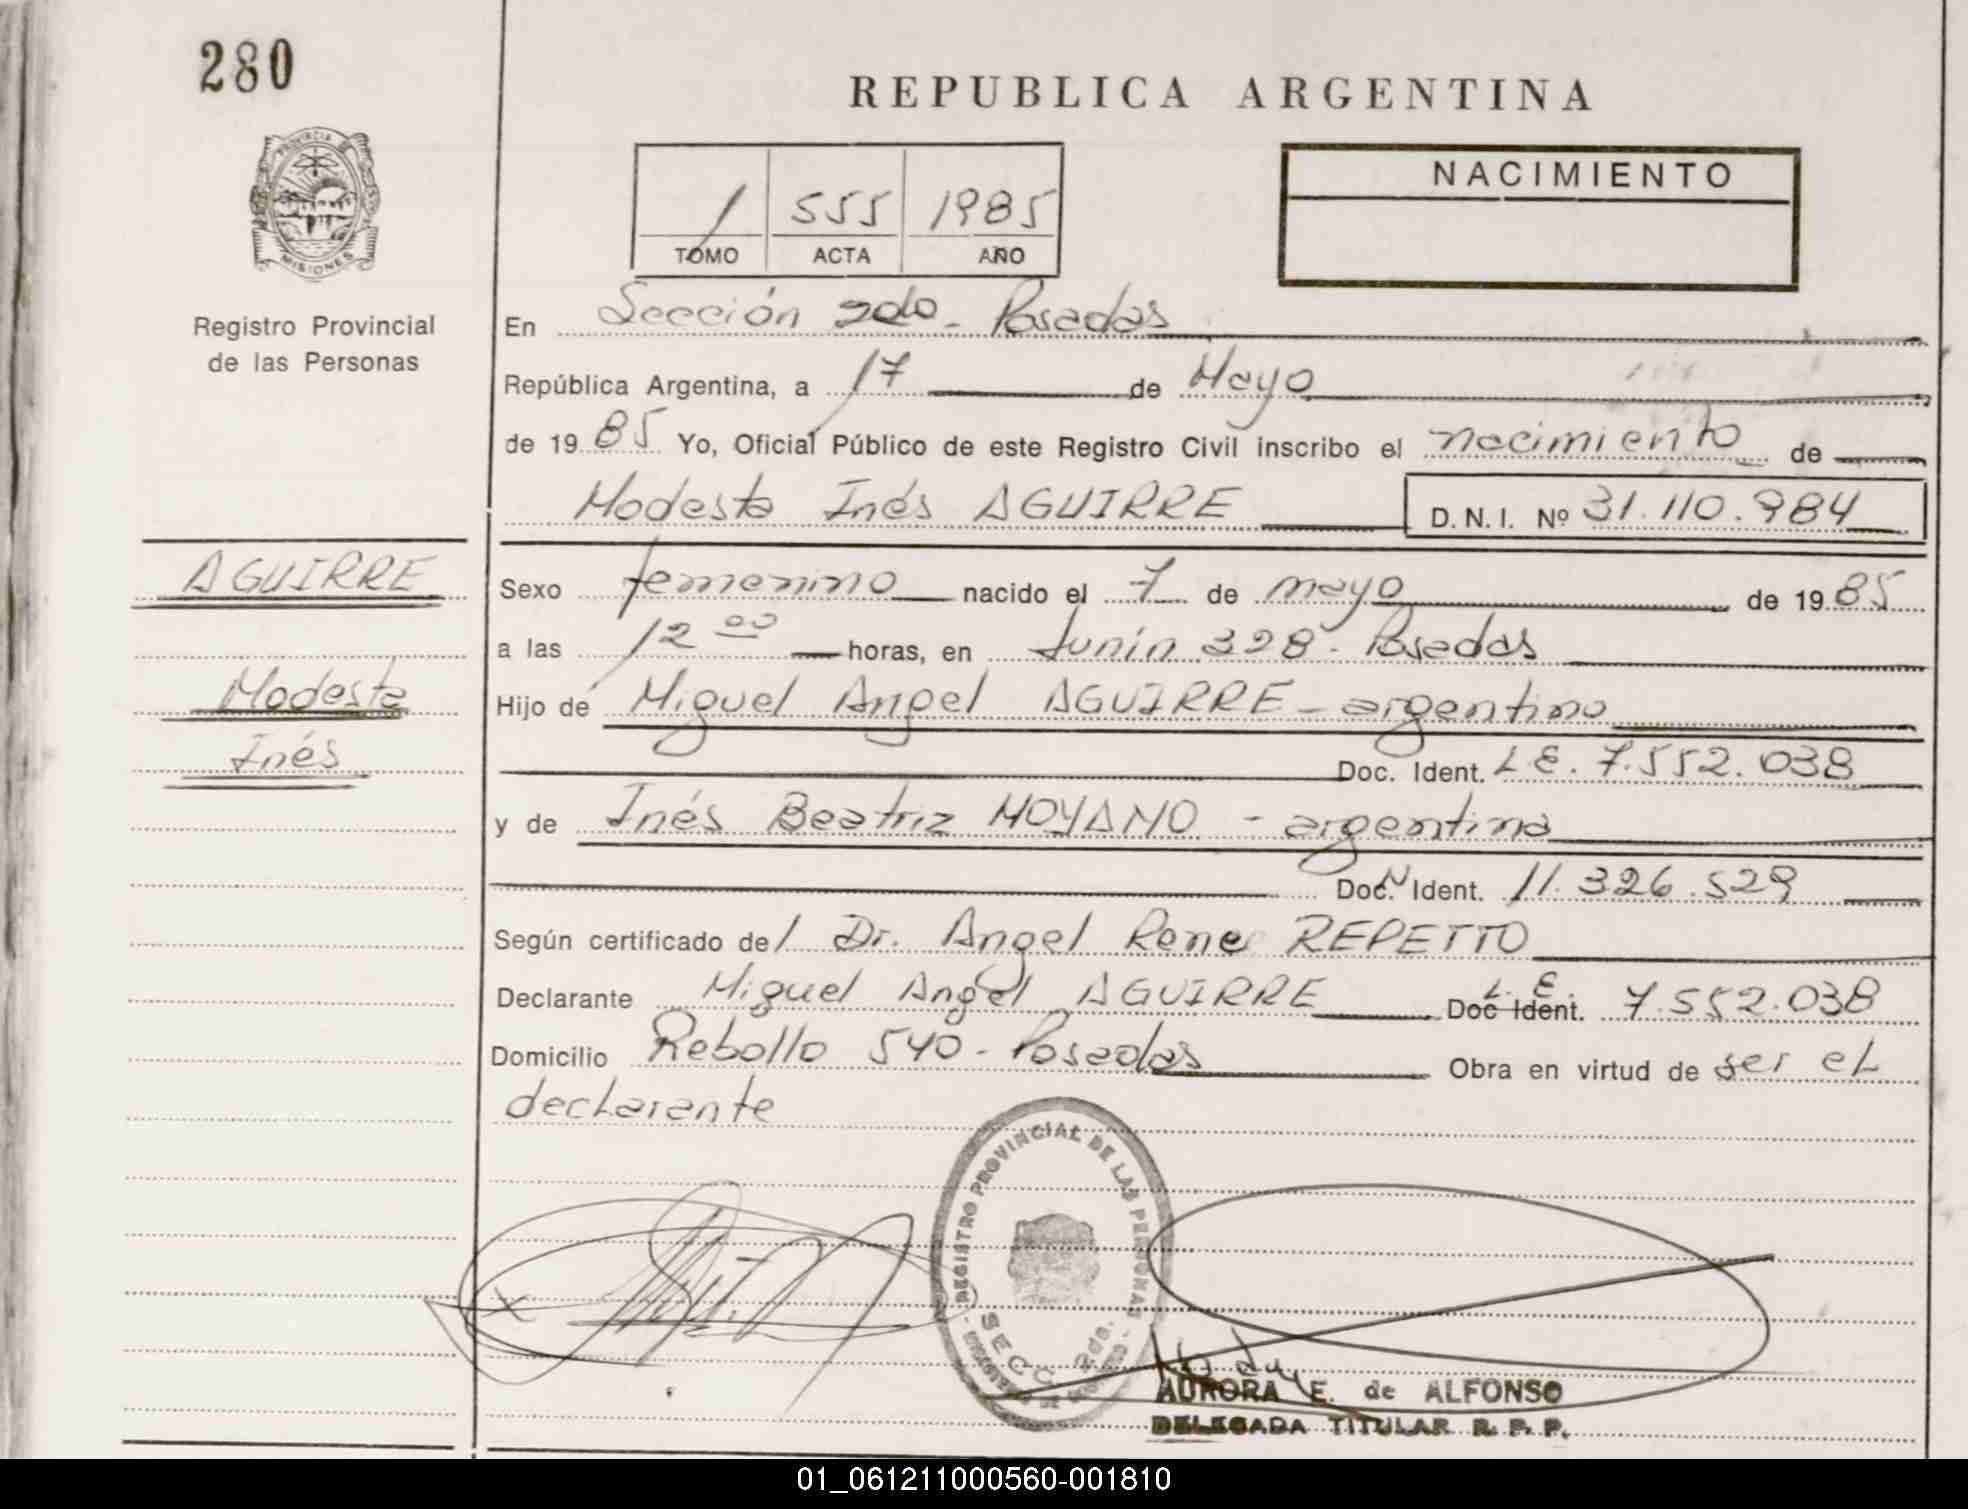 280
REPUBLICA ARGENTINA
PROVINCIA
MISIONES
NACIMIENTO
1 555 1985
TOMO ACTA AÑO
Registro Provincial
de las Personas
En Sección 2do. Posadas
República Argentina, a 17 de Mayo
de 1985 Yo, Oficial Público de este Registro Civil inscribo el nacimiento de
Modesta Inés AGUIRRE D.N.I. Nº 31.110.984
AGUIRRE
Modesta
Inés
Sexo femenino nacido el 7 de mayo de 1985
a las 12 00 horas, en Junín 328 - Posadas
Hijo de Miguel Angel AGUIRRE - argentino
Doc. Ident. L.E. 7.552.038
y de Inés Beatriz MOYANO - argentina
Doc. Ident. 11.326.529
Según certificado del Dr. Angel Rene REPETTO
Declarante Miguel Angel AGUIRRE Doc Ident. L.E. 7.552.038
Domicilio Rebollo 540 - Posadas Obra en virtud de ser el
declarante
REGISTRO PROVINCIAL DE LAS PERSONAS
SECC. 2da.
AURORA E. de ALFONSO
DELEGADA TITULAR R. P. P.
01_061211000560-001810